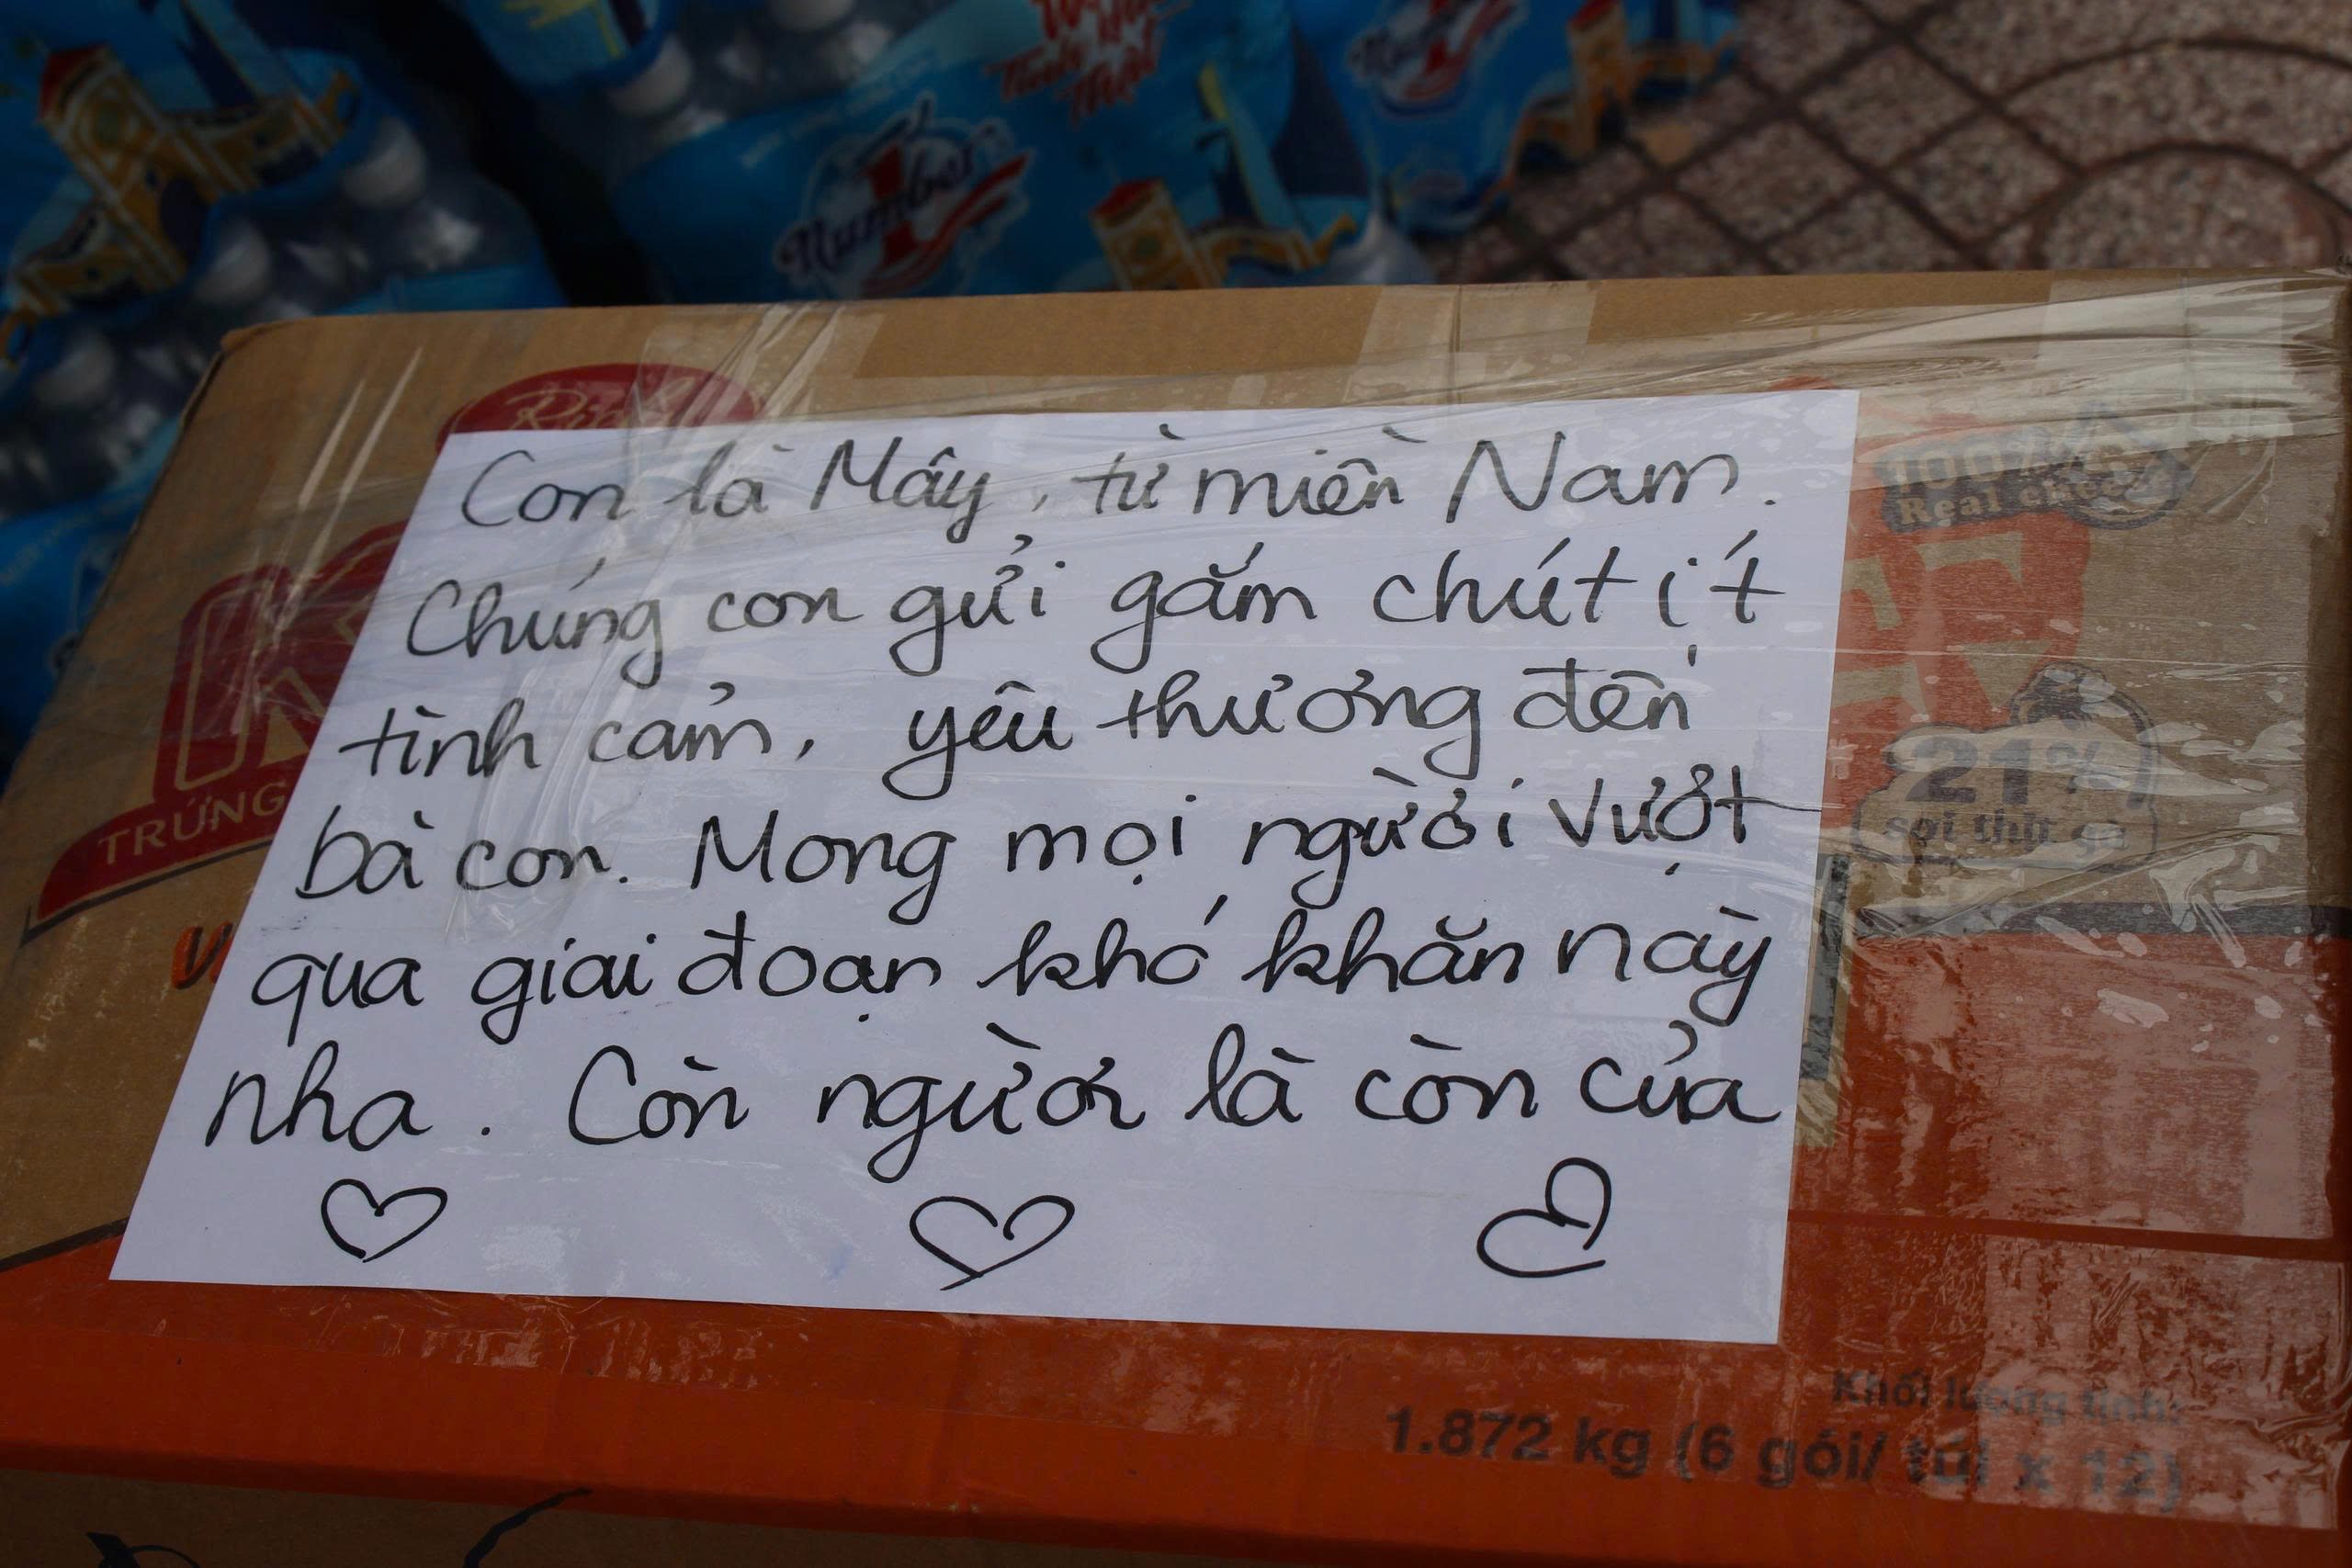 Number 1
Number 1
Rich
Con là Mây, từ miền Nam.
Chúng con gửi gắm chút ít
tình cảm, yêu thương đến
bà con. Mong mọi người vượt
qua giai đoạn khó khăn này
nha. Còn người là còn của
100%
Real
TRỨNG
21%
sợi thịt gà
Khối lượng tịnh:
1.872 kg (6 gói/ túi x 12)